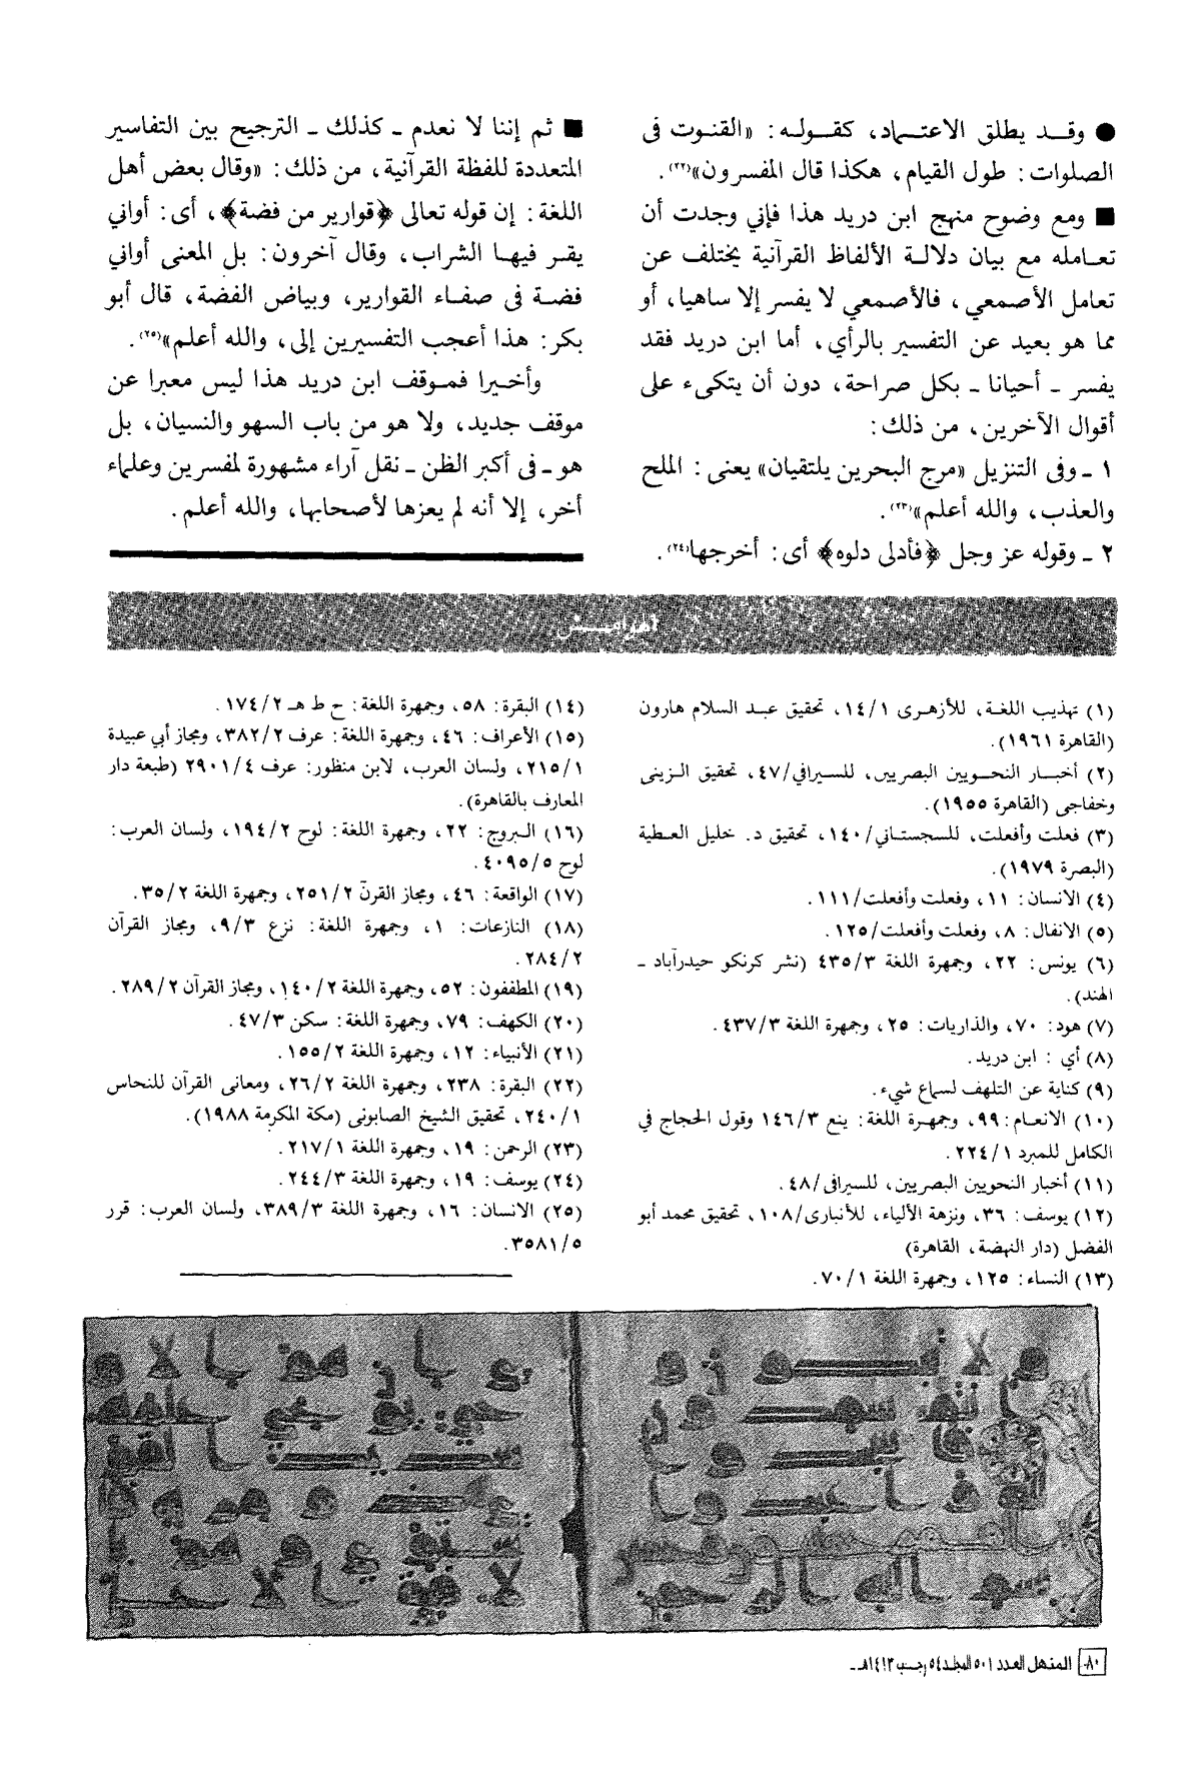 ● وقـد يطلق الاعتـماد، كقـولـه: «القنـوت فى
الصلوات: طول القيام، هكذا قال المفسرون»(٢٢).
■ ومع وضوح منهج ابن دريد هذا فإني وجدت أن
تعـامله مع بيان دلالـة الألفاظ القرآنية يختلف عن
تعامل الأصمعي، فالأصمعي لا يفسر إلا ساهيا، أو
مما هو بعيد عن التفسير بالرأي، أما ابن دريد فقد
يفسر ـ أحيانا ـ بكل صراحة، دون أن يتكىء على
أقوال الآخرين، من ذلك:
١ ـ وفى التنزيل «مرج البحرين يلتقيان» يعنى: الملح
والعذب، والله أعلم»(٢٣).
٢ ـ وقوله عز وجل ﴿فأدلى دلوه﴾ أى: أخرجها(٢٤).
■ ثم إننا لا نعدم ـ كذلك ـ الترجيح بين التفاسير
المتعددة للفظة القرآنية، من ذلك: «وقال بعض أهل
اللغة: إن قوله تعالى ﴿قوارير من فضة﴾، أى: أواني
يقـر فيهـا الشراب، وقال آخرون: بل المعنى أواني
فضـة فى صفـاء القوارير، وبياض الفضة، قال أبو
بكر: هذا أعجب التفسيرين إلى، والله أعلم»(٢٥).
وأخـيرا فمـوقف ابن دريد هذا ليس معبرا عن
موقف جديد، ولا هو من باب السهو والنسيان، بل
هو ـ فى أكبر الظن ـ نقل آراء مشهورة لمفسرين وعلماء
أخر، إلا أنه لم يعزها لأصحابها، والله أعلم.
الهوامـش
(١) تهذيب اللغـة، للأزهـرى ١٤/١، تحقيق عبـد السلام هارون
(القاهرة ١٩٦١).
(٢) أخبـار النحـويين البصريين، للسـيرافي/٤٧، تحقيق الـزينى
وخفاجى (القاهرة ١٩٥٥).
(٣) فعلت وأفعلت، للسجستـاني/١٤٠، تحقيق د. خليل العـطية
(البصرة ١٩٧٩).
(٤) الانسان: ١١، وفعلت وأفعلت/١١١.
(٥) الانفال: ٨، وفعلت وأفعلت/١٢٥.
(٦) يونس: ٢٢، وجمهرة اللغة ٤٣٥/٣ (نشر كرنكو حيدرآباد ـ
الهند).
(٧) هود: ٧٠، والذاريات: ٢٥، وجمهرة اللغة ٤٣٧/٣.
(٨) أي: ابن دريد.
(٩) كناية عن التلهف لسماع شيء.
(١٠) الانعـام: ٩٩، وجمهـرة اللغة: ينع ١٤٦/٣ وقول الحجاج في
الكامل للمبرد ٢٢٤/١.
(١١) أخبار النحويين البصريين، للسيرافى/٤٨.
(١٢) يوسف: ٣٦، ونزهة الألياء، للأنبارى/١٠٨، تحقيق محمد أبو
الفضل (دار النهضة، القاهرة)
(١٣) النساء: ١٢٥، وجمهرة اللغة ٧٠/١.
(١٤) البقرة: ٥٨، وجمهرة اللغة: ح ط هـ ١٧٤/٢.
(١٥) الأعراف: ٤٦، وجمهرة اللغة: عرف ٣٨٢/٢، ومجاز أبي عبيدة
٢١٥/١، ولسان العرب، لابن منظور: عرف ٢٩٠١/٤ (طبعة دار
المعارف بالقاهرة).
(١٦) الـبروج: ٢٢، وجمهرة اللغة: لوح ١٩٤/٢، ولسان العرب:
لوح ٤٠٩٥/٥.
(١٧) الواقعة: ٤٦، ومجاز القرنّ ٢٥١/٢، وجمهرة اللغة ٣٥/٢.
(١٨) النازعات: ١، وجمهرة اللغة: نزع ٩/٣، ومجاز القرآن
٢٨٤/٢.
(١٩) المطففون: ٥٢، وجمهرة اللغة ١٤٠/٢، ومجاز القرآن ٢٨٩/٢.
(٢٠) الكهف: ٧٩، وجمهرة اللغة: سكن ٤٧/٣.
(٢١) الأنبياء: ١٢، وجمهرة اللغة ١٥٥/٢.
(٢٢) البقرة: ٢٣٨، وجمهرة اللغة ٢٦/٢، ومعانى القرآن للنحاس
٢٤٠/١، تحقيق الشيخ الصابونى (مكة المكرمة ١٩٨٨).
(٢٣) الرحمن: ١٩، وجمهرة اللغة ٢١٧/١.
(٢٤) يوسف: ١٩، وجمهرة اللغة ٢٤٤/٣.
(٢٥) الانسان: ١٦، وجمهرة اللغة ٣٨٩/٣، ولسان العرب: قرر
٣٥٨١/٥.
٨٠ المنهل العدد ٥٠١ المجلد ٥٤ رجـب ١٤١٣هـ ـ